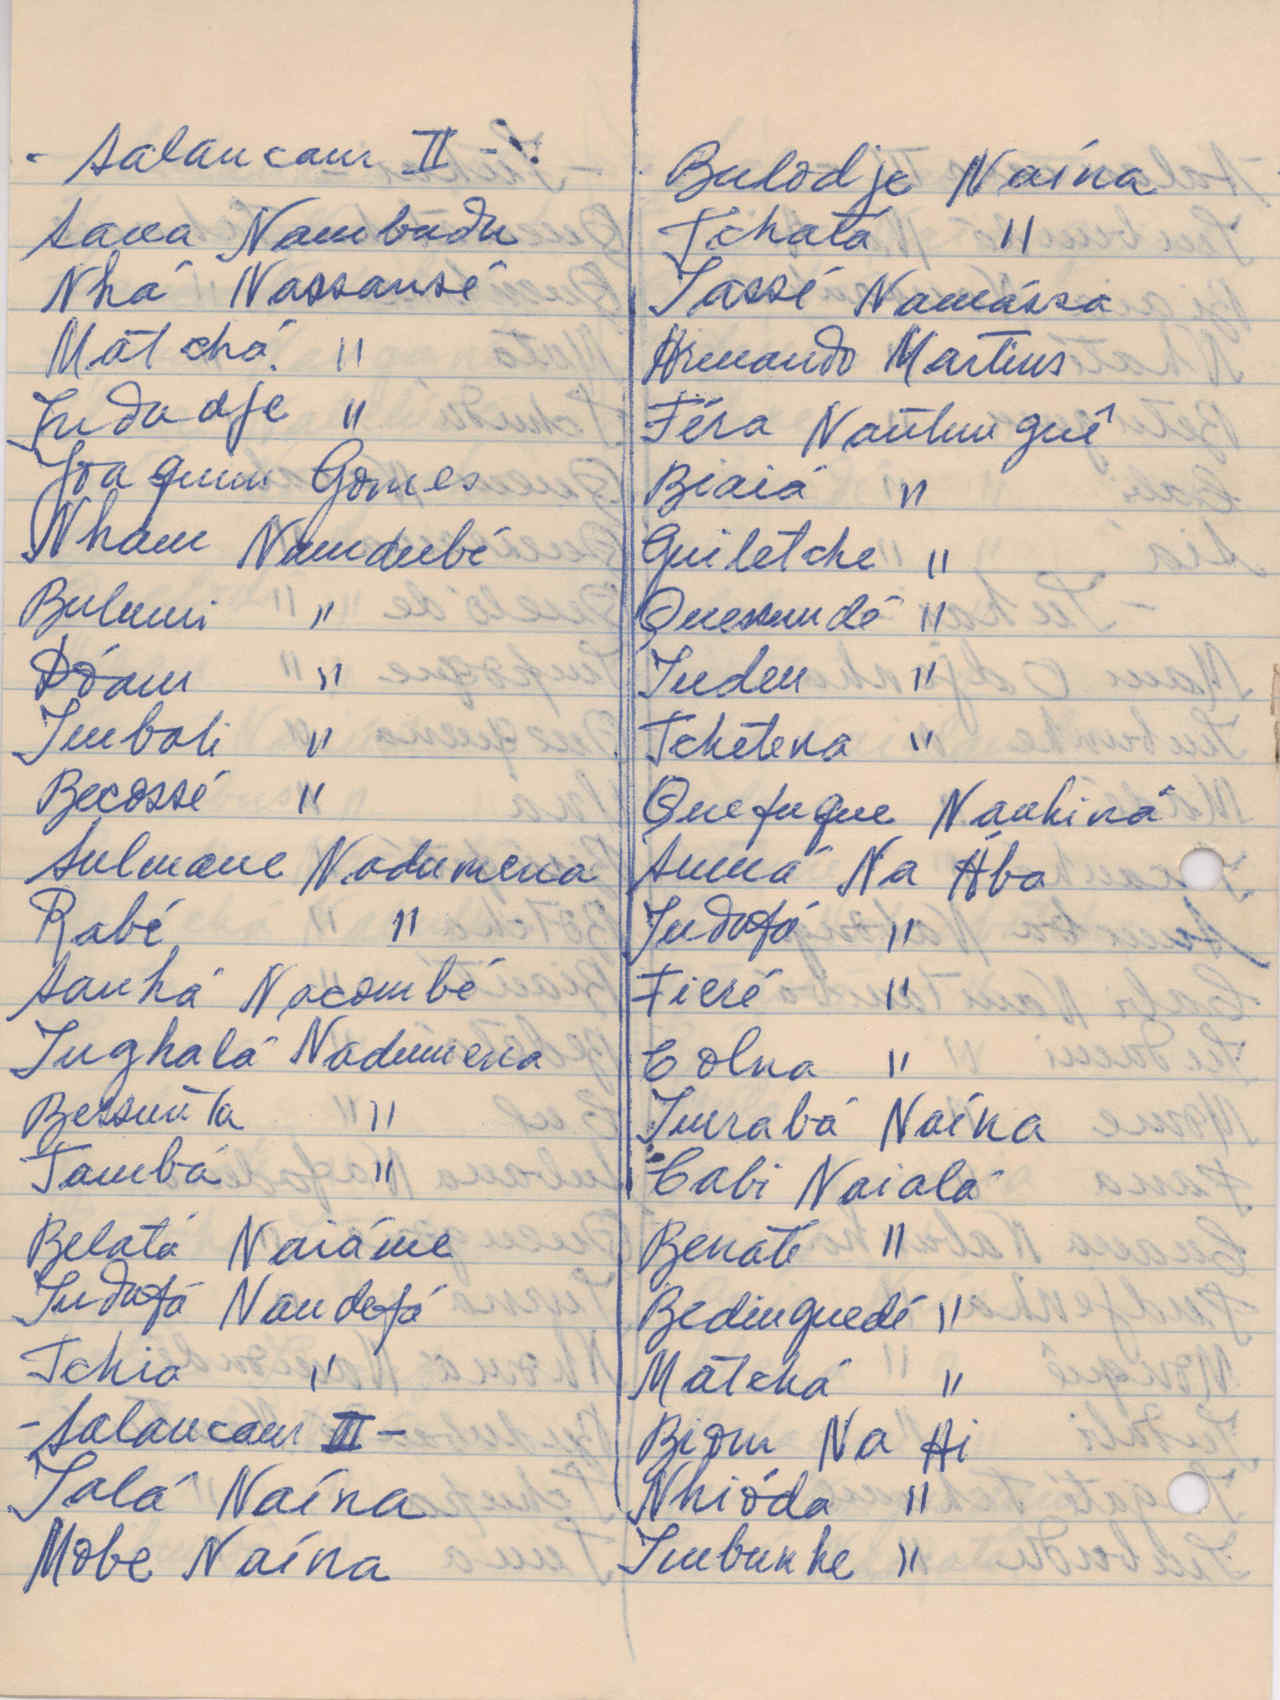 - Salancaur II -
Sana Nambudu
Nhá Nassansé
Mátchá "
Indadje "
Joaquim Gomes
Nham Namdubé
Bulumi "
Dóam "
Imbali "
Becossé "
Sulmane Nadumena
Rabé "
Sanhá Nacombé
Inghalá Nadumena
Bessunta "
Tambá "
Belatá Naiáme
Indafá Naudefá
Tchia "
- Salancaur III -
Ialá Naína
Mobe Naína
Bulodje Naína
Tchatá "
Iassé Namássa
Armando Martins
Féra Nantunguê
Biaiá "
Guiletche "
Quessundé "
Inden "
Tchetena "
Quefugue Nanhiná
Sumá Na Ába
Indafá "
Fieré "
Colna "
Imrabá Naína
Cabi Naialá
Benaté "
Bedinguedé "
Mátchá "
Biom Na Hi
Nhióda "
Imbunhe "